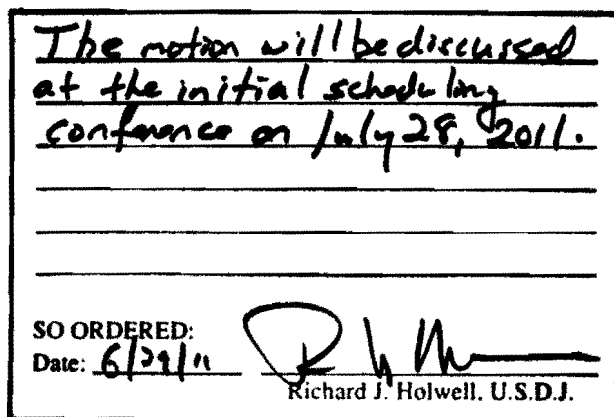 The motion will be discussed
at the initial scheduling
conference on July 28, 2011.
SO ORDERED:
Date: 6/29/11
Richard J. Holwell, U.S.D.J.